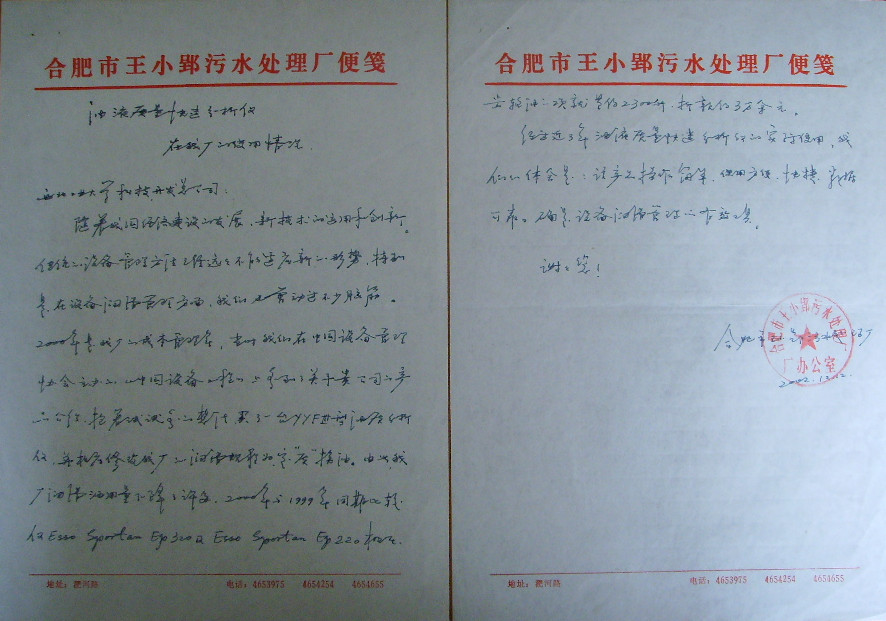 合肥市王小郢污水处理厂便笺
油液质量快速分析仪
在我厂的使用情况
西北工业大学科技开发总公司：
随着我国经济建设的发展，新技术的运用和创新。
传统的设备管理方法已经远远不能适应新的形势，特别
是在设备润滑管理方面，我们也费动过不少脑筋。
2000年是我厂成本管理年，当时我们在中国设备管理
协会主办的《中国设备工程》上看到了关于贵公司的产
品介绍，抱着试试看的想法买了一台YYF型油质分析
仪，并执后修改我厂的润滑规程为定"质"换油。由此我
厂润滑油用量下降了许多，2000年与1999年同期比较
仅Esso Spartan Ep320及Esso Spartan Ep220
地址：淝河路 电话：4653975 4654254 4654655
合肥市王小郢污水处理厂便笺
齿轮油二项就节约2300升，折款约3万余元。
经过近3年油液质量快速分析仪的实际使用，我
们的体会是：该产品操作简单，使用方便、快捷，数据
可靠。确是设备润滑管理的有效工具。
谢谢您！
合肥市王小郢污水处理厂
2002.12.12.
合肥市王小郢污水处理厂
厂办公室
地址：淝河路 电话：4653975 4654254 4654655